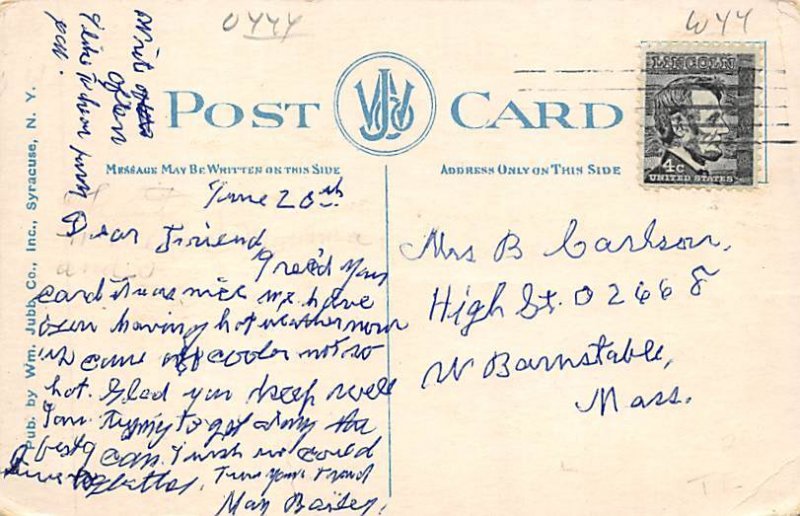 0444
W44
Write often
I like to hear from
you.
POST CARD
LINCOLN
4c
UNITED STATES
MESSAGE MAY BE WRITTEN ON THIS SIDE
ADDRESS ONLY ON THIS SIDE
Pub. by Wm. Jubb Co., Inc., Syracuse, N. Y.
June 20th
Dear Friend
I rec'd your
card it was nice we have
been having hot weather now
it came off cooler not so
hot. Glad you keep well
I am trying to get along the
best I can. I wish we could
Your Friend
May Bailey.
Mrs B Carlson,
High St. 02668
W Barnstable,
Mass.